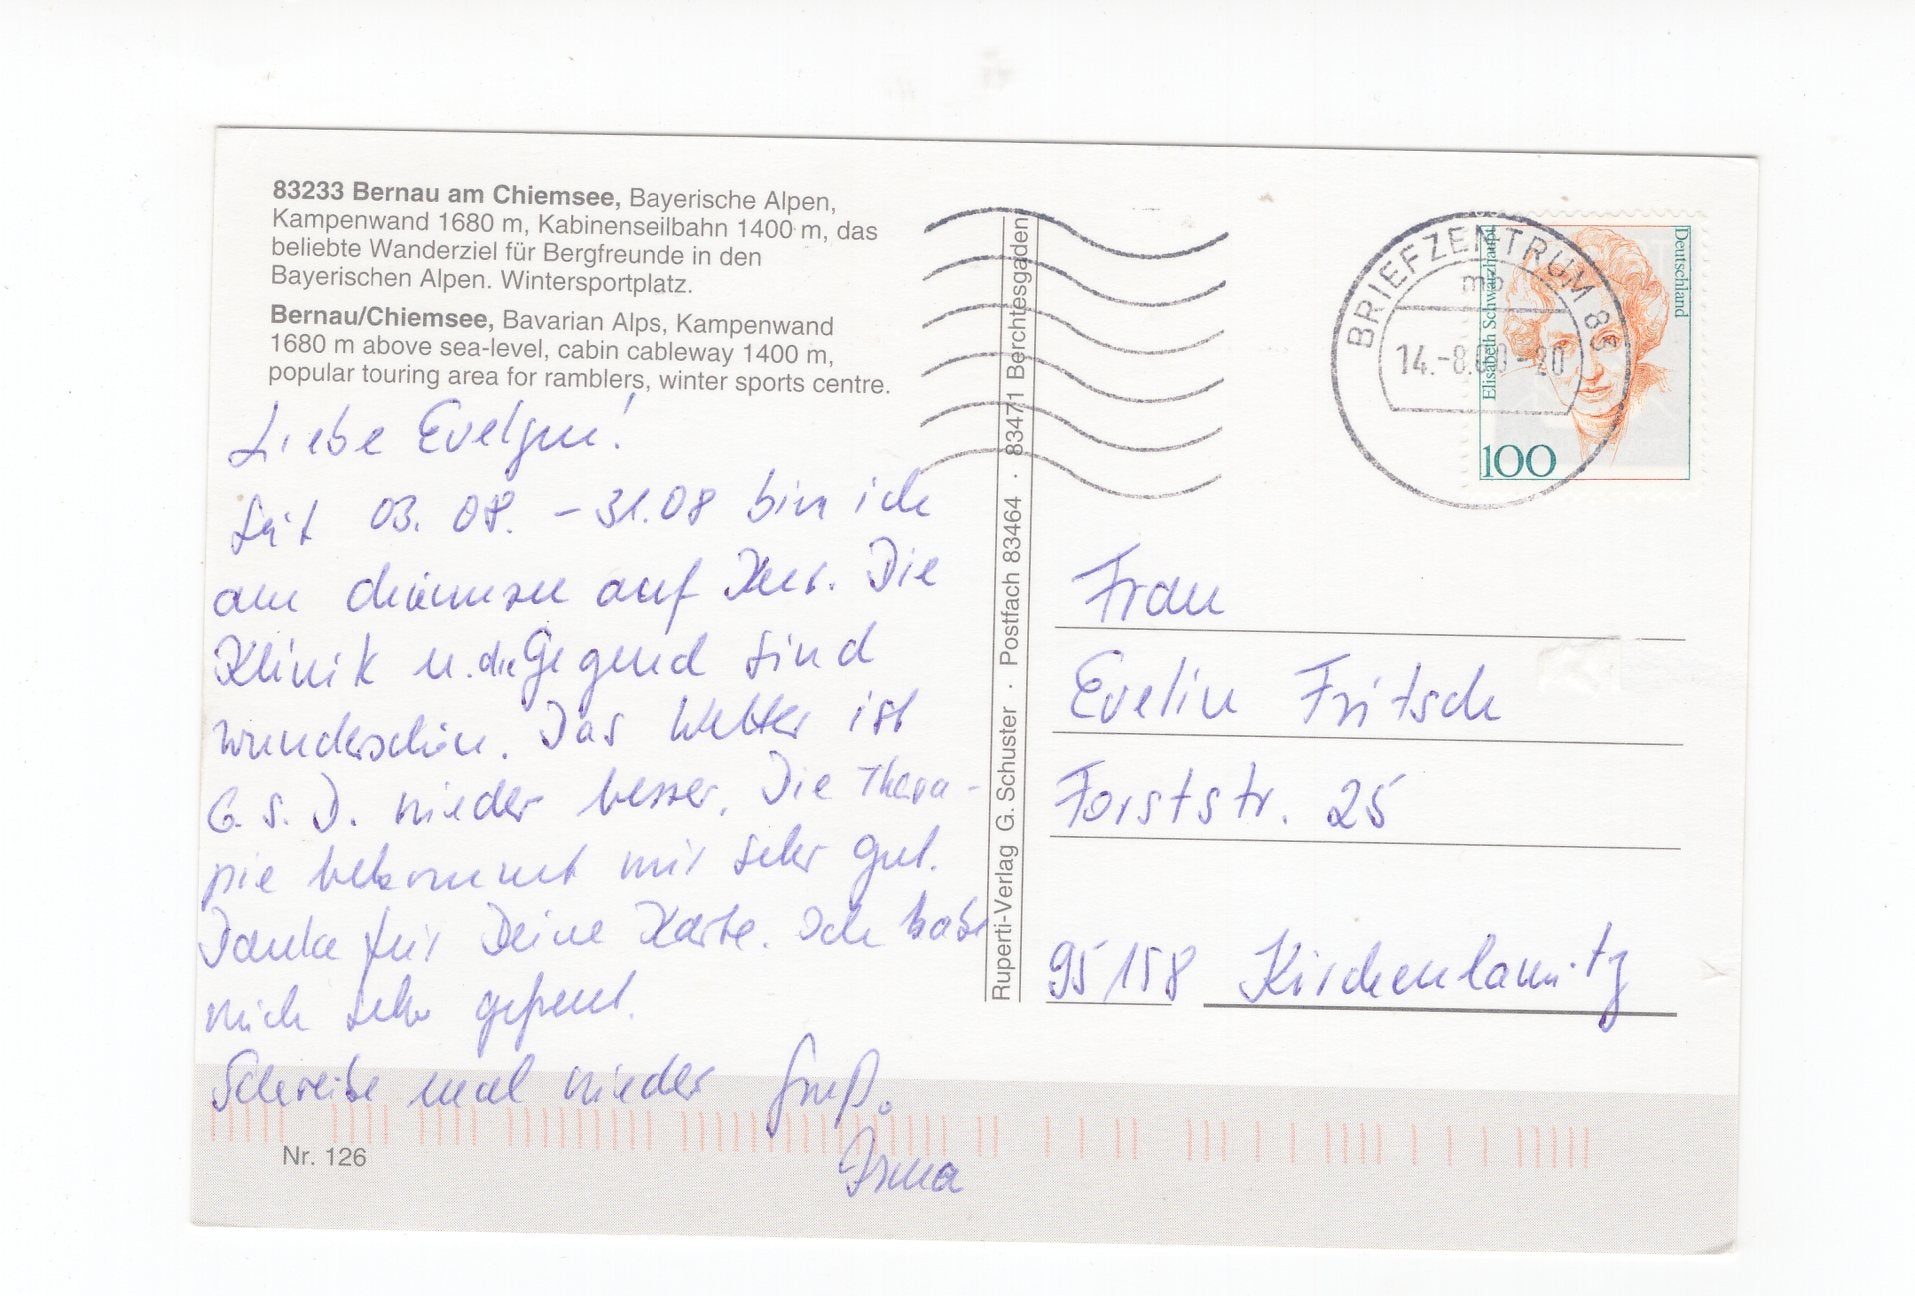 83233 Bernau am Chiemsee, Bayerische Alpen,
Kampenwand 1680 m, Kabinenseilbahn 1400 m, das
beliebte Wanderziel für Bergfreunde in den
Bayerischen Alpen. Wintersportplatz.
Bernau/Chiemsee, Bavarian Alps, Kampenwand
1680 m above sea-level, cabin cableway 1400 m,
popular touring area for ramblers, winter sports centre.
Liebe Evelyne!
Seit 03. 08. - 31.08 bin ich
am Chiemsee auf Kur. Die
Klinik u. die Gegend sind
wunderschön. Das Wetter ist
G. S. D. wieder besser. Die Thera-
pie bekommt mir sehr gut.
Danke für Deine Karte. Ich habe
mich sehr gefreut.
Schreibe mal wieder Gruß.
Irma
Nr. 126
Ruperti-Verlag G. Schuster · Postfach 83464 · 83471 Berchtesgaden
BRIEFZENTRUM 83
mb
14.-8.00-20
Elisabeth Schwarzhaupt
Deutschland
100
Frau
Evelin Fritsch
Forststr. 25
95158 Kirchenlamitz